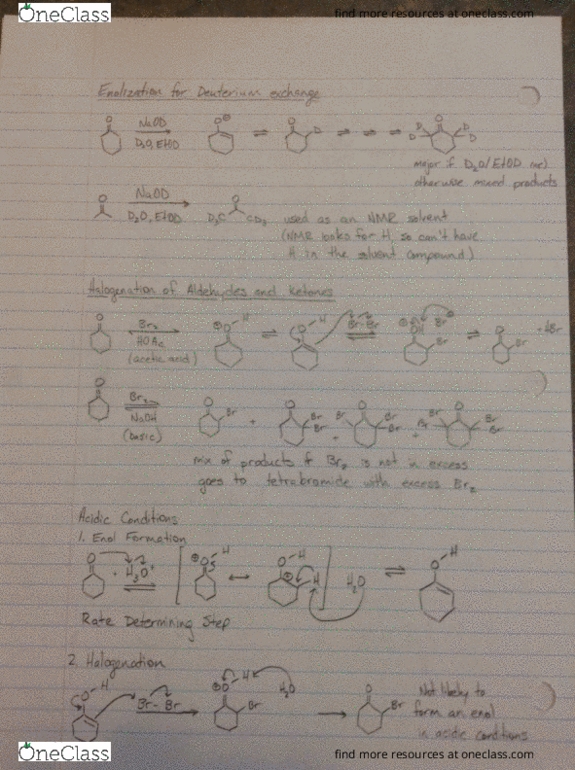 OneClass
find more resources at oneclass.com
Enolization for Deuterium exchange
NaOD
D₂O, EtOD
major if D₂O/EtOD
otherwise mixed products
NaOD
D₂O, EtOD
D₃C CD₃ used as an NMR solvent
(NMR looks for H, so can't have
H in the solvent compound)
Halogenation of Aldehydes and Ketones
Br₂
HOAc
(acetic acid)
Br-Br
Br₂
NaOH
(basic)
mix of products if Br₂ is not in excess
goes to tetrabromide with excess Br₂
Acidic Conditions
1. Enol Formation
+ H₃O⁺
H₂O
Rate Determining Step
2. Halogenation
Br-Br
H₂O
Not likely to
form an enol
in acidic conditions
OneClass
find more resources at oneclass.com